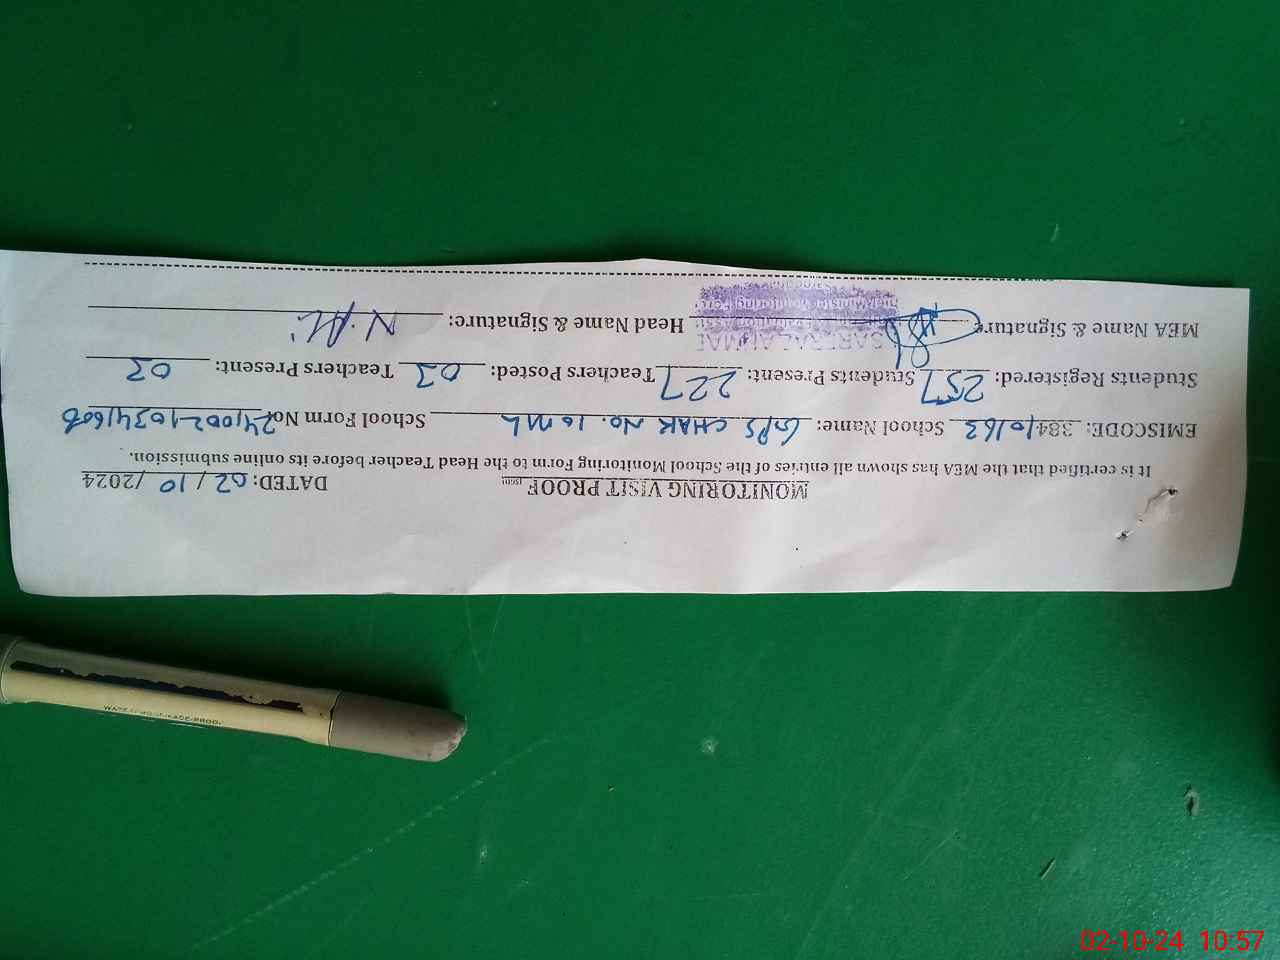 MONITORING VISIT PROOF DATED: 02/10/2024
It is certified that the MEA has shown all entries of the School Monitoring Form to the Head Teacher before its online submission.
EMISCODE: 38410163 School Name: GPS CHAK No. 10 ML School Form No. 241002-10341606
Students Registered: 257 Students Present: 227 Teachers Posted: 03 Teachers Present: 03
MEA Name & Signature Head Name & Signature: N. Ali
02-10-24 10:57